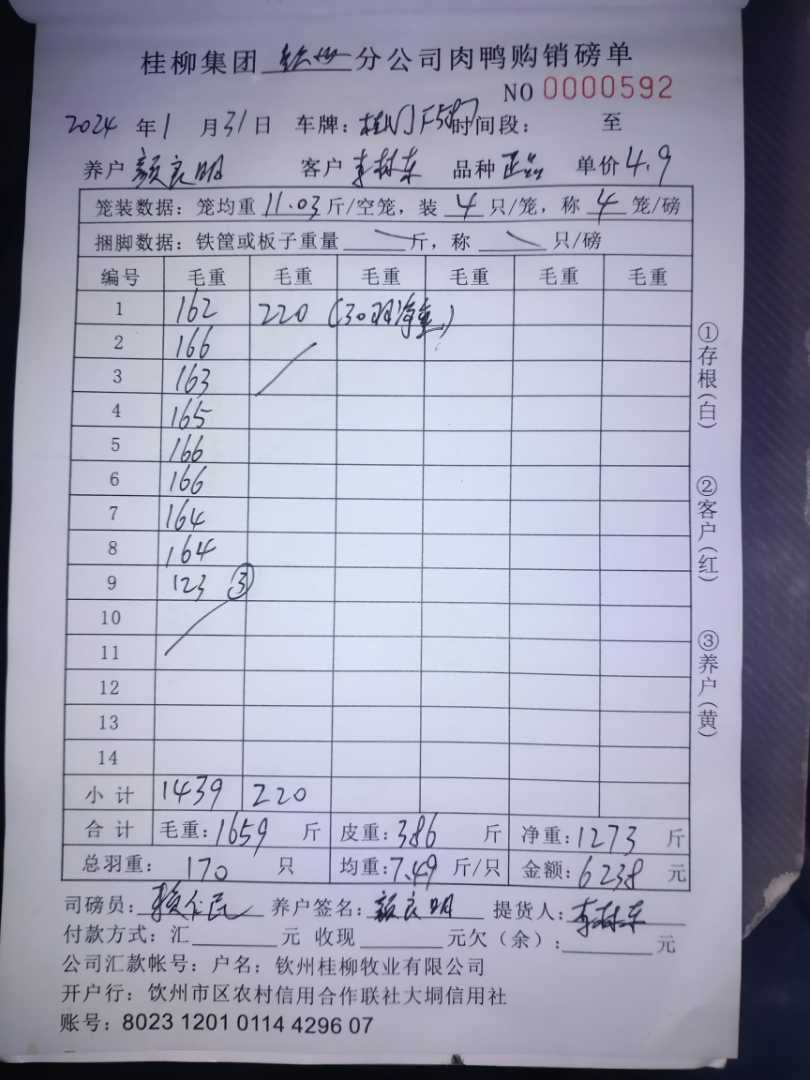 桂柳集团 钦州 分公司肉鸭购销磅单
NO 0000592
2024 年 1 月 31 日 车牌: 时间段: 至
养户 颜良明 客户 李林东 品种 正品 单价 4.9
笼装数据: 笼均重 11.03 斤/空笼, 装 4 只/笼, 称 4 笼/磅
捆脚数据: 铁筐或板子重量 斤, 称 只/磅
编号 毛重 毛重 毛重 毛重 毛重 毛重
1 162 220 (30羽净重)
2 166
3 163
4 165
5 166
6 166
7 164
8 164
9 123 ③
10
11
12
13
14
小计 1439 220
合计 毛重: 1659 斤 皮重: 386 斤 净重: 1273 斤
总羽重: 170 只 均重: 7.49 斤/只 金额: 6238 元
司磅员: 养户签名: 颜良明 提货人: 李林东
付款方式: 汇 元 收现 元欠(余): 元
公司汇款帐号: 户名: 钦州桂柳牧业有限公司
开户行: 钦州市区农村信用合作联社大垌信用社
账号: 8023 1201 0114 4296 07
①存根(白)
②客户(红)
③养户(黄)